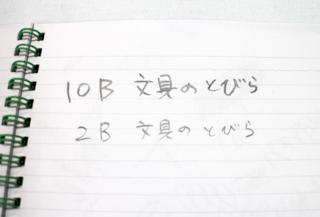 10B 文具のとびら
2B 文具のとびら